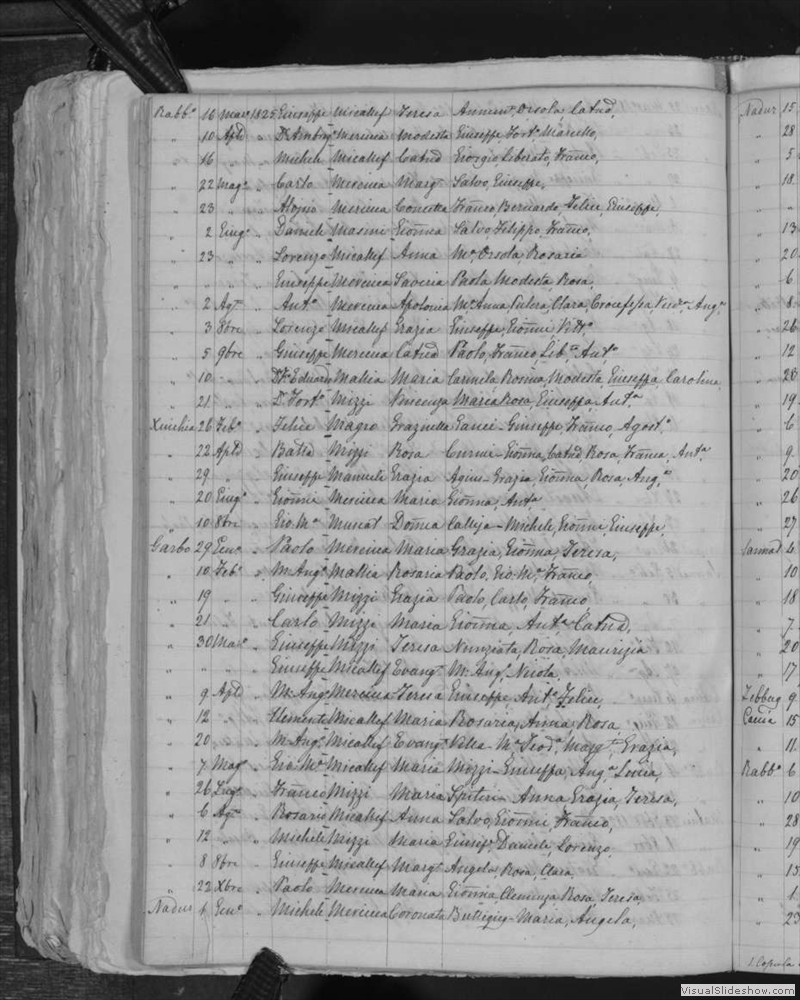 Rabb.o 16 Mar. 1825 Giuseppe Micallef Teresa Annun.ta Orsola, Catud,
" 10 Ap.le " Dr. Ambrog. Mercieca Modesta Giuseppe, Fort.o Marcello,
" 16 " " Michele Micallef Catud Giorgio Liberato, Franco,
" 22 Mag.o " Carlo Mercieca Marg.a Salvo, Giuseppe,
" 23 " " Aloysio Mercieca Concetta Franco Bernardo, Felice, Giuseppe,
" 2 Giug.o " Daniele Masini Gionna Salvo, Filippo, Franco,
" 23 " " Lorenzo Micallef Anna M.a Orsola, Rosaria
" " " Giuseppe Mercieca Saveria Paola Modesta, Rosa,
" 2 Ag.to " Ant.o Mercieca Apolonia M.a Anna Clara, Crocefissa, Ang.a
" 3 8bre " Lorenzo Micallef Grazia Giuseppe, Gionni
" 5 9bre " Giuseppe Mercieca Catud Paolo, Franco, Lib.ta Ant.a
" 10 " " Dr. Eduardo Mallia Maria Carmela, Rosina, Modesta, Giuseppa, Carolina,
" 21 " " Dr. Fort.o Mizzi Vincenza Maria Rosa, Giuseppa, Ant.a
Xeuchia 26 Feb.o " Felice Magro Graziella Gauci - Giuseppe, Franco, Agost.o
" 22 Ap.le " Batta Mizzi Rosa Curmi - Gionna, Catud, Rosa, Franca, Ant.a
" 29 " " Giuseppe Manuele Grazia Agius - Grazia, Gionna, Rosa, Ang.a
" 20 Giug.o " Gionni Mercieca Maria Gionna, Ant.a
" 10 8bre " Gio. M.a Muscat Donna Calleja - Michele, Gionni, Giuseppe,
Garbo 29 Gen.o " Paolo Mercieca Maria Grazia, Gionna, Teresa,
" 10 Feb.o " M. Ang.o Mallia Rosaria Paolo, Gio. M.a Franco,
" 19 " " Giuseppe Mizzi Grazia Paolo, Carlo, Franco
" 21 " " Carlo Mizzi Maria Gionna, Ant.a Catud,
" 30 Mar.o " Giuseppe Mizzi Teresa Nunziata, Rosa, Maurizia
" " " Giuseppe Micallef Evang.ta M. Ang.o
" 9 Ap.le " M. Ang.o Mercieca Teresa Giuseppe, Ant.o Felice,
" 12 " " Clemente Micallef Maria Rosaria, Anna, Rosa
" 20 " " M. Ang.o Micallef Evang.ta M.a Teod.a Marg.ta Grazia,
" 7 Mag.o " Gio. M.a Micallef Maria Mizzi - Giuseppa, Ang.a
" 26 " Franco Mizzi Maria Spiteri - Anna Grazia, Teresa,
" 6 Ag.to " Rosario Micallef Anna Salvo, Gionni, Franco,
" 12 " " Michele Mizzi Maria Giusep.e Daniele, Lorenzo,
" 8 8bre " Giuseppe Micallef Marg.ta Angela, Rosa, Clara,
" 22 Xbre " Paolo Mercieca Maria Gionna, Clemenza, Rosa, Teresa,
Nadur 1 Gen.o " Michele Mercieca Coronata Buttigieg - Maria, Angela,
Nadur 15
" 28
" 5
" 18
" "
" 13
" 20
" 6
" 8
" 26
" 12
" 23
" 19
" 6
" 9
" 20
" 26
" 27
Sannat 4
" 10
" 18
" 7
" 20
" 17
Zebbug 9
15
" 11
Rabb.o 6
" 10
" 28
" 19
" 15
" 1
" 23
VisualSlideshow.com